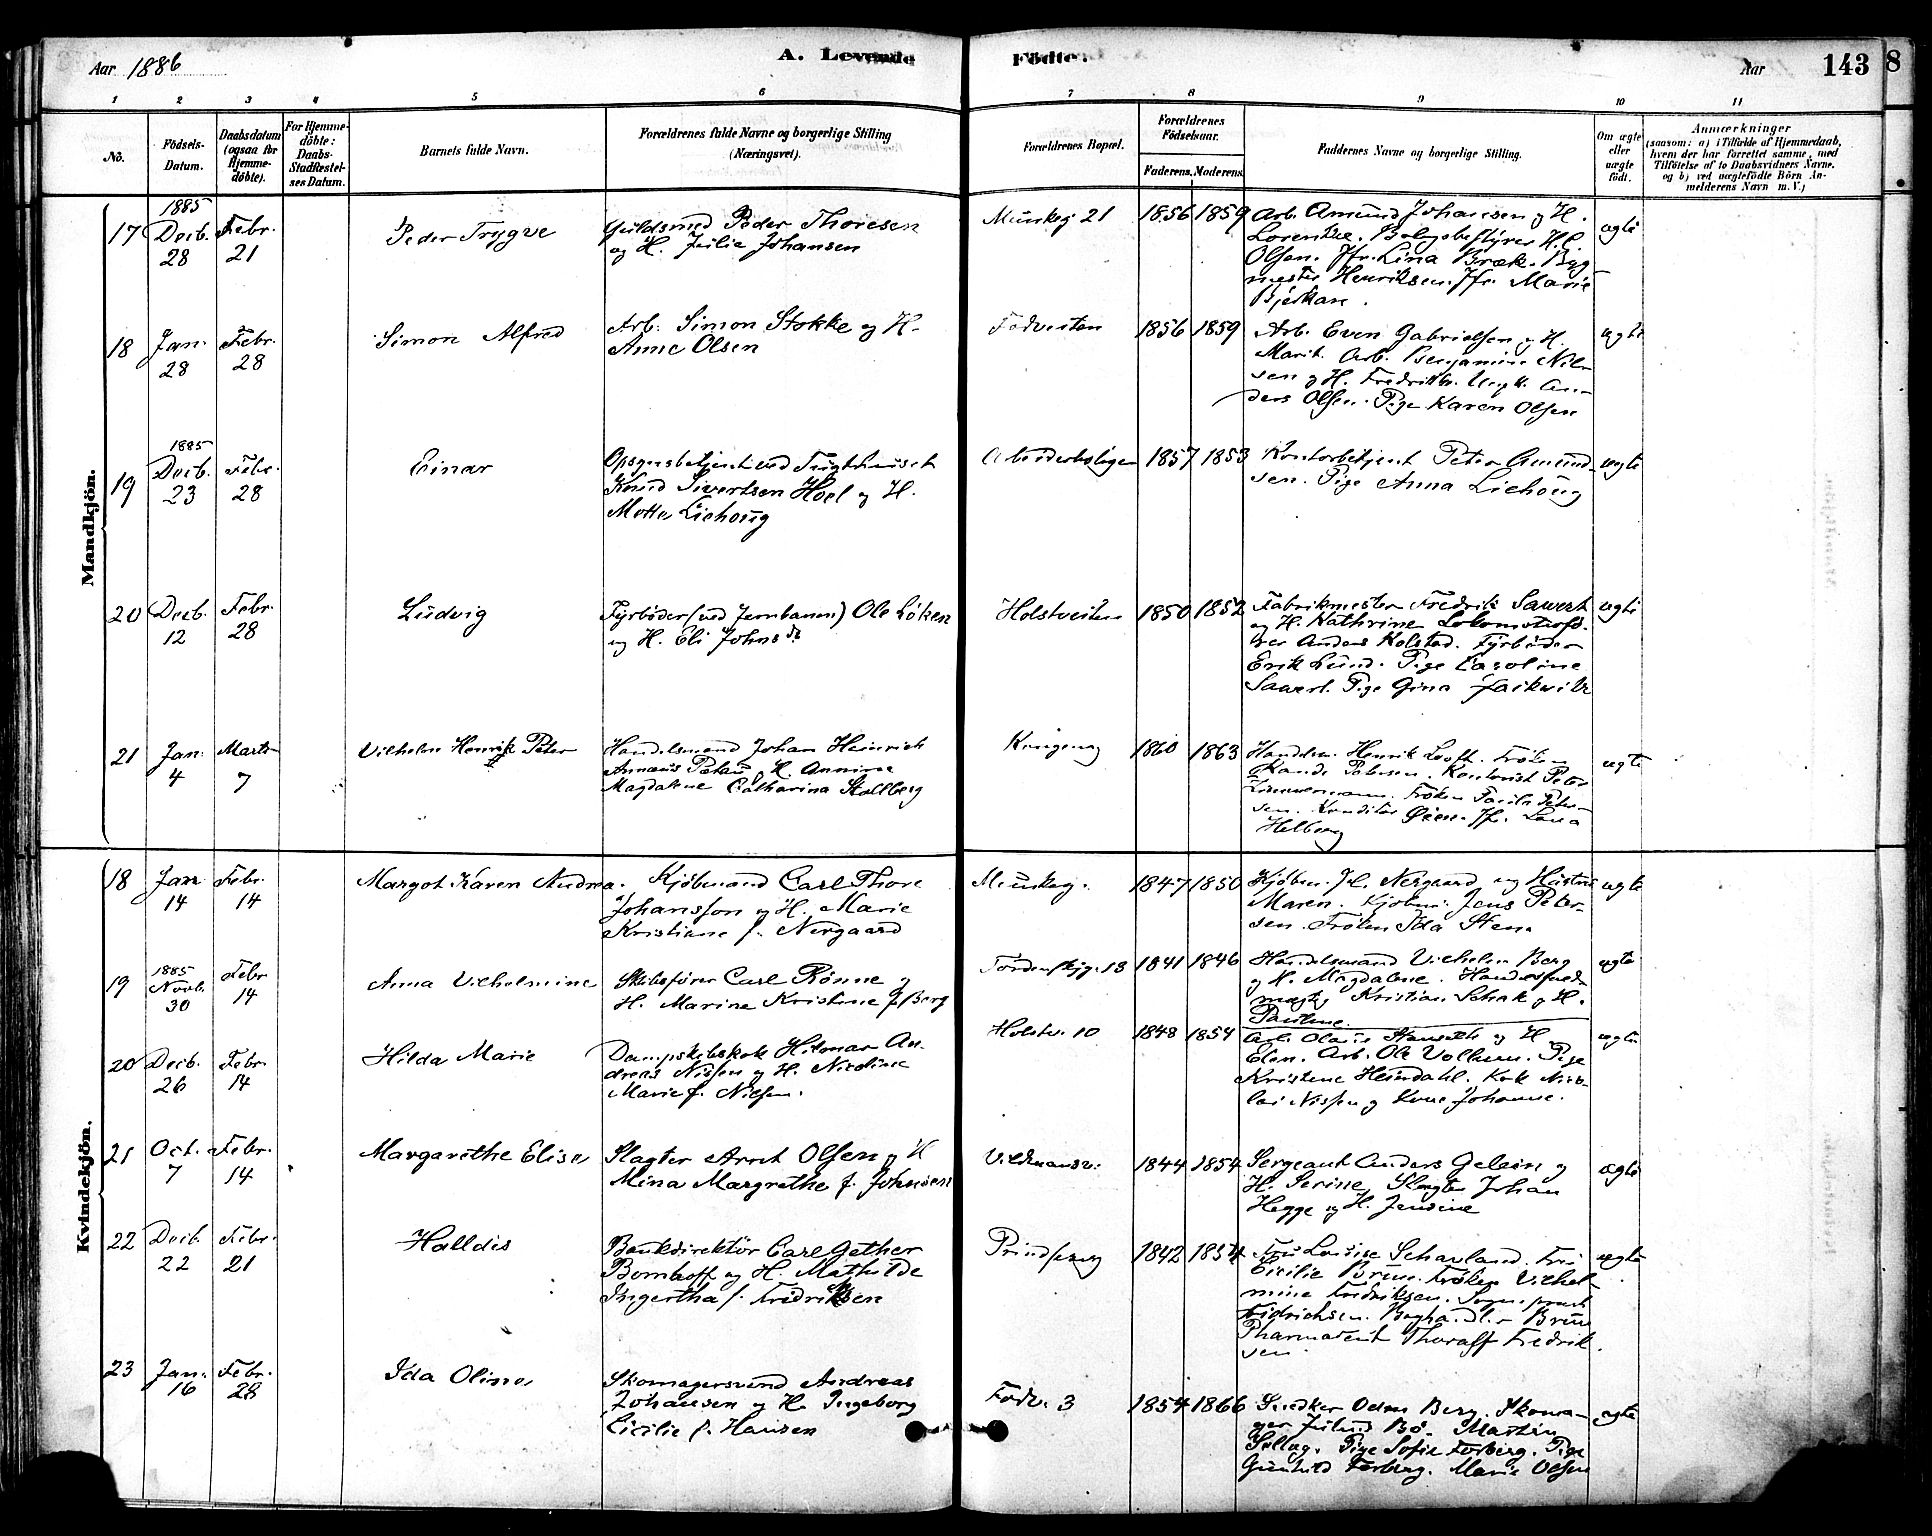 Aar 1886
A. Levende
Födte.
Aar
143
8
1 2 3 4 5 6 7 8 9 10 11
No.
Födsels-
Datum.
Daabsdatum
(ogsaa for
Hjemme-
döbte).
For Hjemme-
döbte:
Daabs-
Stadfæstel-
ses Datum.
Barnets fulde Navn.
Forældrenes fulde Navne og borgerlige Stilling
(Næringsvei).
Forældrenes Bopæl.
Forældrenes
Födselsaar.
Faderens. Moderens.
Faddernes Navne og borgerlige Stilling.
Om ægte
eller
uægte
födt.
Anmærkninger
(saasom: a) i Tilfælde af Hjemmedaab,
hvem der har forrettet samme, med
Tilföielse af to Daabsvidners Navne.
og b) ved uægtefödte Börn An-
melderens Navn m. V.)
Mandkjön.
17
1885
Decb.
28
Febr.
21
Peder Trygve
Guldsmed Peder Thoresen
og H. Julie Johansen
Munkeg 21
1856 1859
Arb. Amund Johansen og H.
Lorentze. Bolagsbestyrer H. C.
Olsen. Jfr. Lina Bræk. Byg
mester Henriksen. Jfr. Marie
Bjerkan.
ægte
18
Jan.
28
Febr.
28
Simon Alfred
Arb. Simon Stokke og H.
Anne Olsen
1856 1859
Arb. Even Gabrielsen og H.
Marit. Arb. Benjamin Niel-
sen og H. Fredrikke. Ungk. An-
ders Olsen. Pige Karen Olsen
ægte
19
1885
Decb.
23
Febr.
28
Einar
Opsynsbetjent ved Tugthuset
Knud Sivertsen Hoel og H.
Mette Liehoug
Arbeiderboligen
1857 1853
Kontorbetjent Peter Amund-
sen. Pige Anna Liehoug
ægte
20
Decb.
12
Febr.
28
Ludvig
Fyrbøder (ved Jernbanen) Ole Løken
og H. Eli Johnsdr.
Holstveiten
1850 1852
Fabrikmester Fredrik Sawert
og H. Kathrine Lokomotivfø-
rer Anders Kolstad. Fyrbøder
Erik Lund. Pige Caroline
Sawert. Pige Gina
ægte
21
Jan.
4
Marts
7
Vilhelm Henrik Peter
Handelsmand Johan Heinrich
Annæus Petersen og H. Annine
Magdalene Catharina Stallberg
Kongeng
1860 1863
Handelsm. Henrik Looft. Frøken
Petersen. Kontorist Peter
Zimmermann. Frøken Peter-
sen. Konditor Øien. Jfr. Lena
Helberg
ægte
Kvindekjön.
18
Jan
14
Febr.
14
Margot Karen Andrea.
Kjøbmand Carl Thore
Johansson og H. Marie
Kristiane f. Nergaard
Munkeg.
1847 1850
Kjøbm. Nergaard og Hustru
Maren. Kjøbm. Jens Peter-
sen. Frøken Ida Sten.
ægte
19
1885
Novb.
30
Febr
14
Anna Vilhelmine
Skibsfører Carl Rønne og
H. Marine Kristine f. Berg
Tordenskjg. 13
1841 1846
Handelsmand Vilhelm Berg
og H. Magdalene. Handelsfuld-
mægtig Kristian Schak og H.
Pauline.
ægte
20
Decb.
26
Febr.
14
Hilda Marie
Dampskibskok Hilmar An-
dreas Nissen og H. Nicoline
Marie f. Nielsen.
Holstv. 10
1848 1854
Arb. Olaus og H
Elen. Arb. Ole Vollum. Pige
Kristine Heindahl. Kok Nico-
lai Nissen og Kone Johanne.
ægte
21
Oct.
7
Febr.
14
Margarethe Elise
Slagter Arnt Olsen og H
Mina Margrethe f. Johnsen
Vildmansv.
1844 1854
Sergeant Anders Gelein og
H. Serine. Slagter Johan
Hegge og H. Jensine
ægte
22
Decb.
22
Febr.
21
Halldis
Bankdirektør Carl Gether
Bomhoff og H. Mathilde
Ingertha f. Fridriksen
Prindseng
1842 1854
Fru Louise Schavland. Fru
Cicilie Bruun. Frøken Vilhel-
mine Fredriksen. Sogneprest
Fridrichsen. Boghandler Bruun
Pharmaceut Thoralf Fredrik
sen.
ægte
23
Jan.
16
Febr.
28
Ida Oline
Skomagersvend Andreas
Johansen og H. Ingeborg
Cicilie f. Hansen
Fødv. 3
1854 1866
Snedker Odin Berg. Skoma-
ger Julius Bø. Martin
Sellæg. Pige Sofie Forberg. Pige
Gunhild Forberg. Marie Olsen
ægte